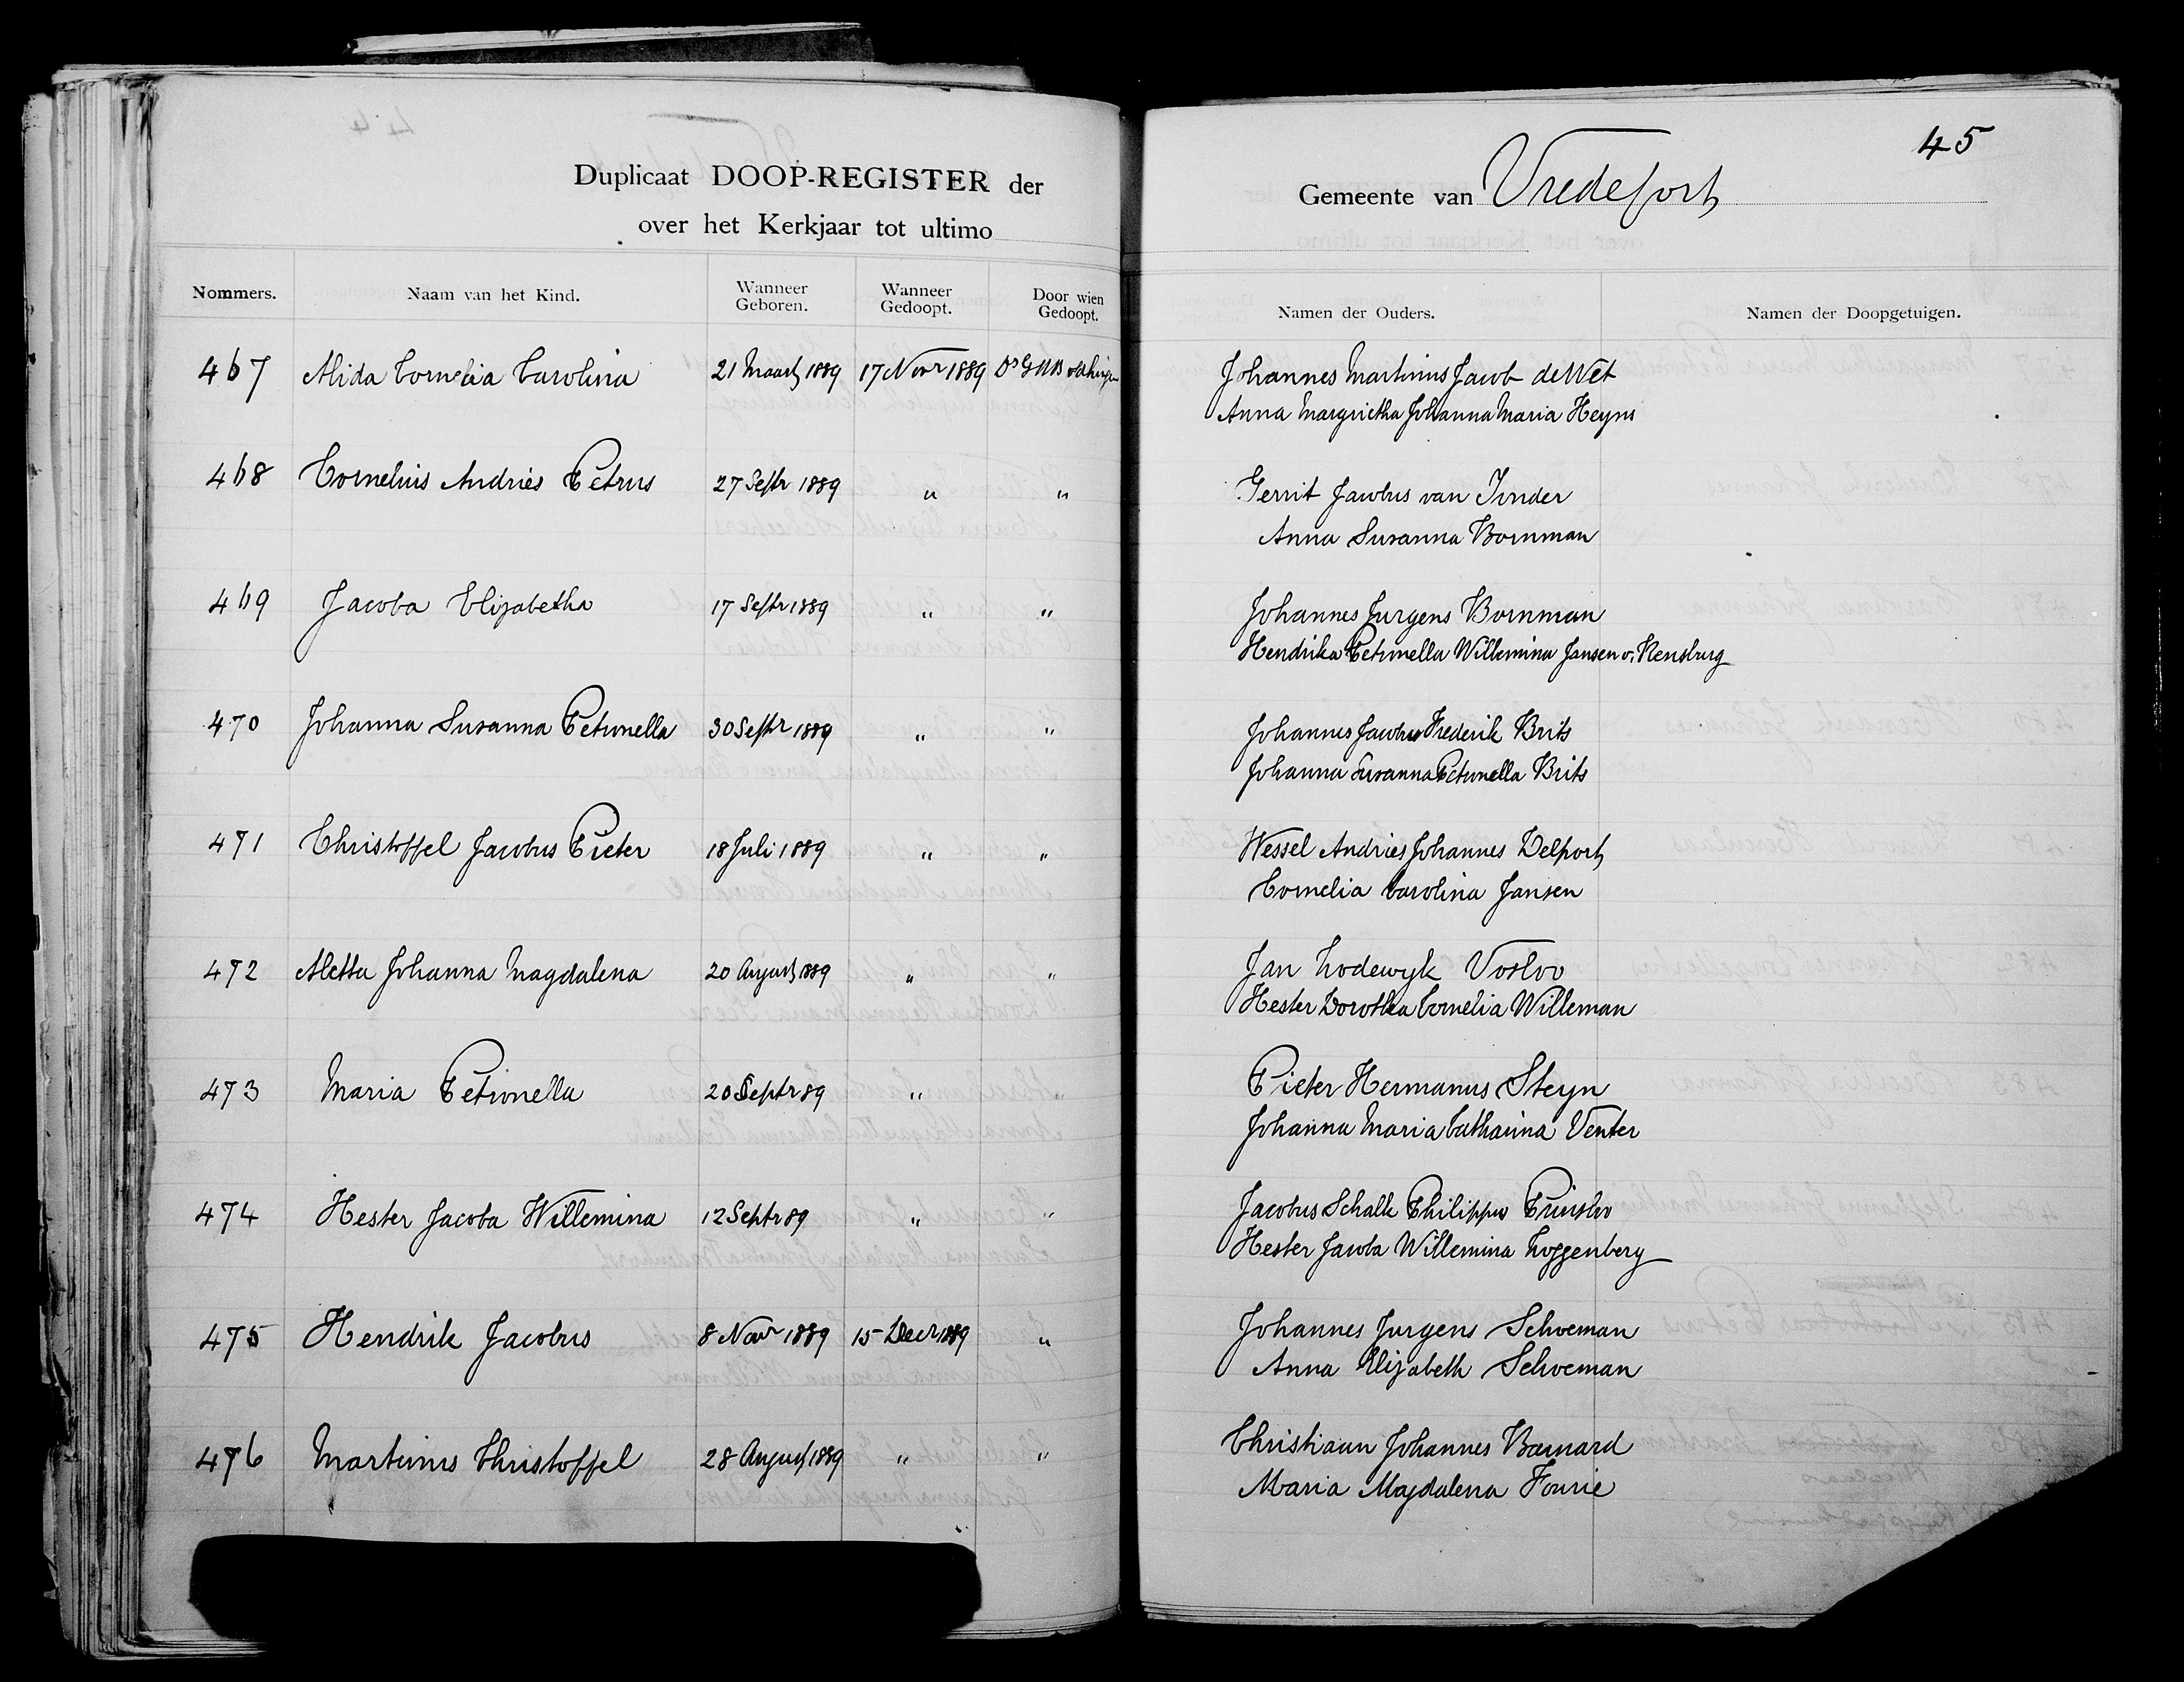 45
Duplicaat DOOP-REGISTER der Gemeente van Vredefort
over het Kerkjaar tot ultimo
Nommers. Naam van het Kind. Wanneer Geboren. Wanneer Gedoopt. Door wien Gedoopt. Namen der Ouders. Namen der Doopgetuigen.
467 Alida Cornelia Carolina 21 Maart 1889 17 Novr 1889 Ds Johannes Martinus Jacob de Wet
Anna Margrietha Johanna Maria Heyns
468 Cornelius Andries Petrus 27 Septr 1889 " " Gerrit Jacobus van Tonder
Anna Susanna Bornman
469 Jacoba Elizabetha 17 Septr 1889 " " Johannes Jurgens Bornman
Hendrika Petronella Willemina Jansen v. Rensburg
470 Johanna Susanna Petronella 30 Septr 1889 " " Johannes Jacobus Frederik Brits
Johanna Susanna Petronella Brits
471 Christoffel Jacobus Pieter 18 Juli 1889 " " Wessel Andries Johannes Delport
Cornelia Carolina Jansen
472 Aletta Johanna Magdalena 20 August 1889 " " Jan Lodewyk Vosloo
Hester Dorothea Cornelia Willeman
473 Maria Petronella 20 Septr 89 " " Pieter Hermanus Steyn
Johanna Maria Catharina Venter
474 Hester Jacoba Willemina 12 Septr 89 " " Jacobus Schalk Philippus Prinsloo
Hester Jacoba Willemina Loggenberg
475 Hendrik Jacobus 8 Novr 1889 15 Decr 1889 " Johannes Jurgens Schoeman
Anna Elizabeth Schoeman
476 Martinus Christoffel 28 August 1889 " " Christiaan Johannes Barnard
Maria Magdalena Fourie